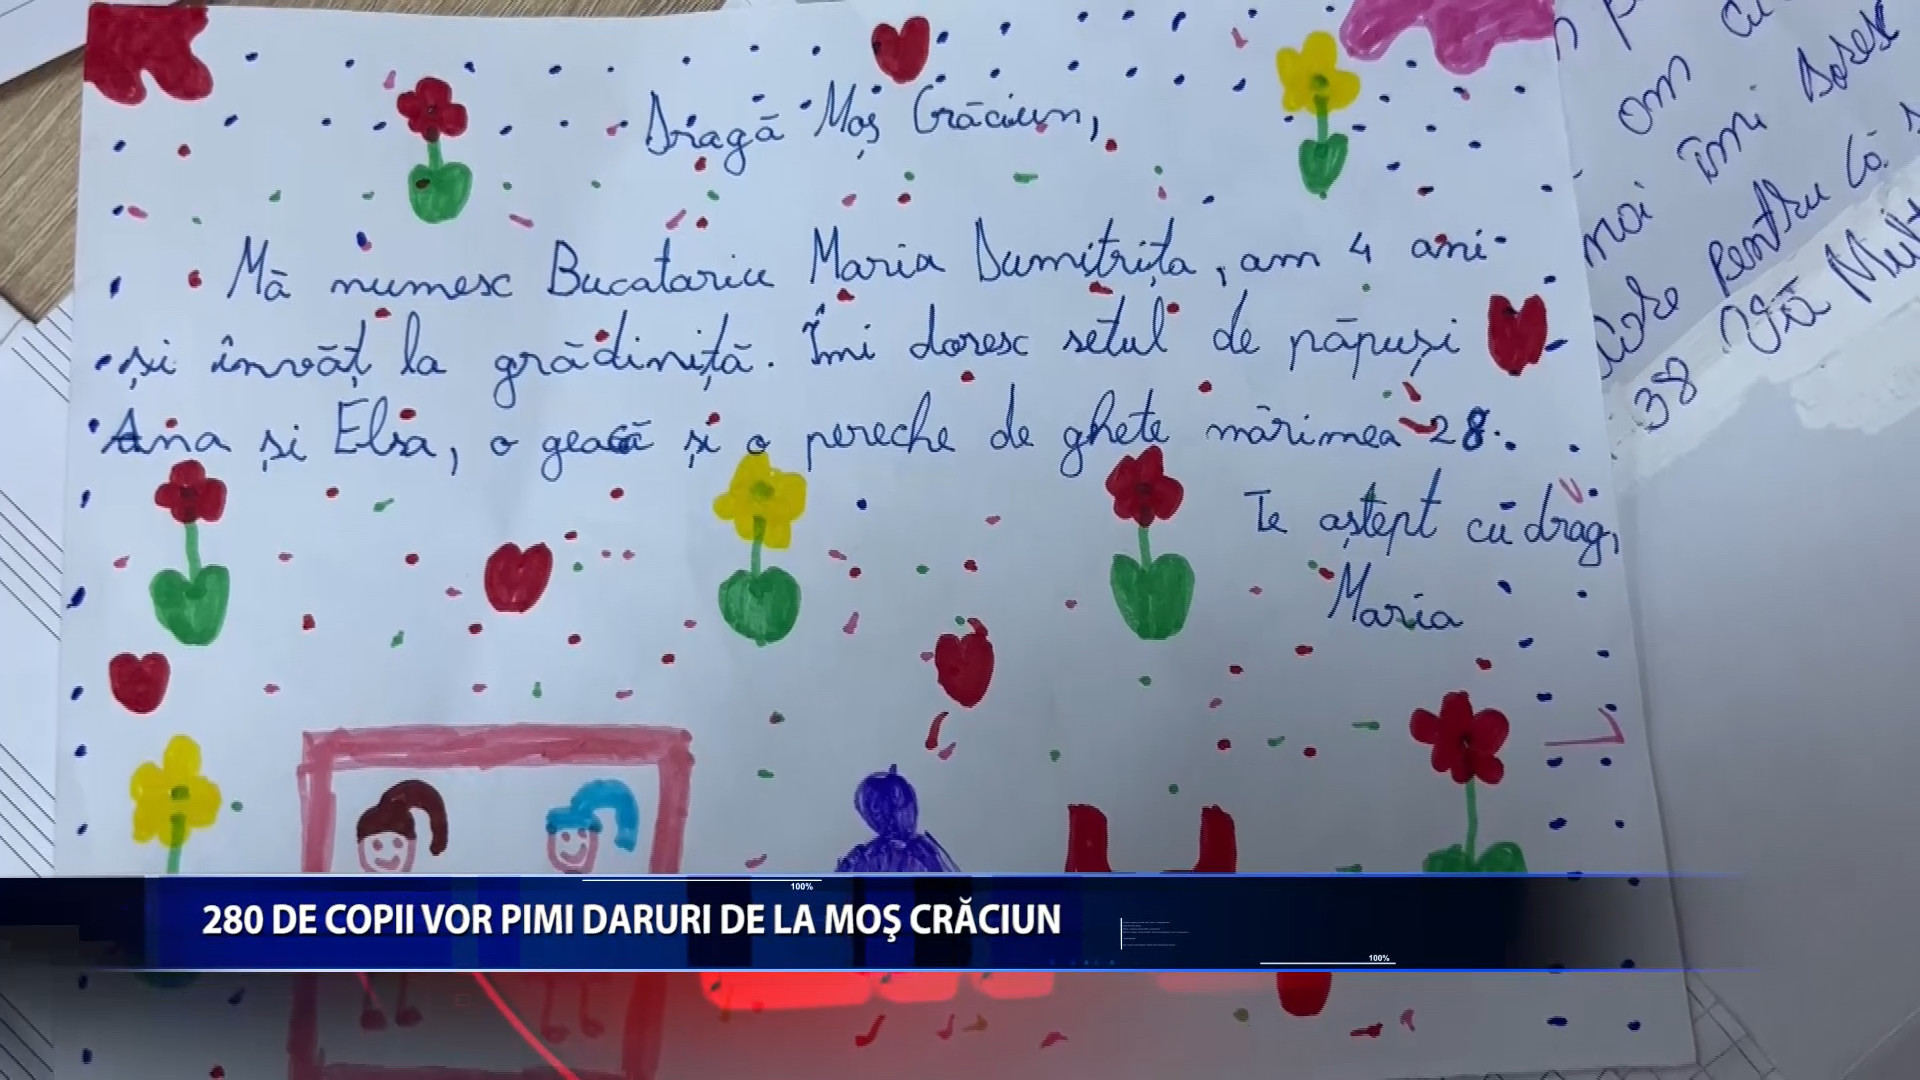 Dragă Moș Crăciun,
Mă numesc Bucatariu Maria Dumitrița, am 4 ani
și învăț la grădiniță. Îmi doresc setul de păpuși
Ana și Elsa, o geacă și o pereche de ghete mărimea 28.
Te aștept cu drag,
Maria
om
noi îmi doresc
pentru că
38
100%
280 DE COPII VOR PIMI DARURI DE LA MOŞ CRĂCIUN
100%